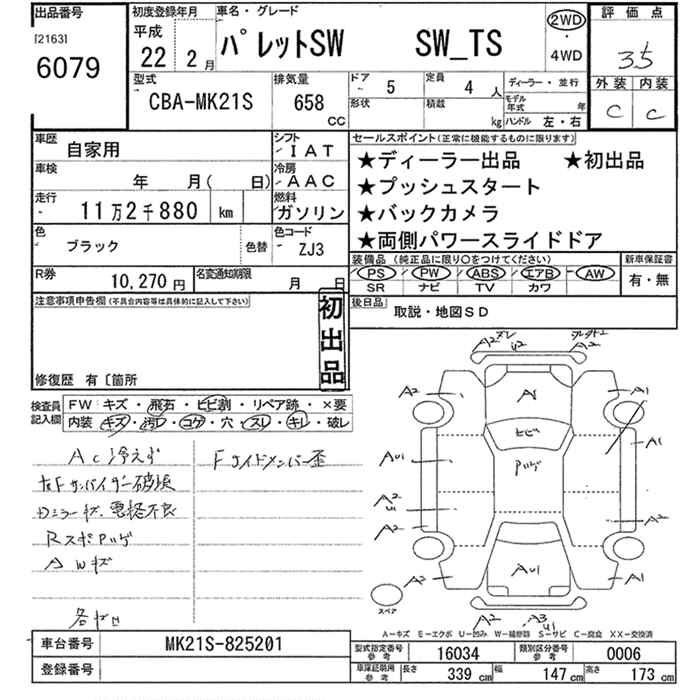 出品番号
[2163]
6079
初度登録年月
平成
22 2月
車名・グレード
パレットSW SW_TS
2WD
・
4WD
評価点
3.5
外装 内装
C C
型式
CBA-MK21S
排気量
658
CC
ドア
- 5
形状
定員
4 人
積載
kg
ディーラー・並行
モデル年式 年
ハンドル 左・右
車歴
自家用
シフト
IAT
車検
年 月( 日)
冷房
AAC
走行
11万2千880 km
燃料
ガソリン
色
ブラック 色替
色コード
ZJ3
R券
10,270円
名変通知期限
月 日
セールスポイント(正常に機能するものに限ります)
★ディーラー出品 ★初出品
★プッシュスタート
★バックカメラ
★両側パワースライドドア
装備品(純正品に限り○をつけてください)
PS PW ABS エアB AW
SR ナビ TV カワ
新車保証書
有・無
後日品
取説・地図SD
注意事項申告欄(不具合内容等は具体的に記入して下さい)
初出品
修復歴 有〔箇所
検査員記入欄
FW キズ・飛石・ヒビ割・リペア跡・×要
内装 キズ・汚レ・コゲ・穴・スレ・キレ・破レ
AC冷えず
Fサイドメンバー歪
右Fサンバイザー破損
Dミラーキズ、悪格不良
RスポPレゲ
AWキズ
A2
U2
A2
A2
A1
A1
ヒビ
AU1
A1
A2
U1
A2
A2
A2
AU1
A1
A2
A3
U1
スペア
A-キズ E-エクボ U-凹み W-補修跡 S-サビ C-腐食 XX-交換済
車台番号
MK21S-825201
登録番号
型式指定番号
参考
16034
類別区分番号
参考
0006
車庫証明用
参考
長さ 339 cm 幅 147 cm 高さ 173 cm